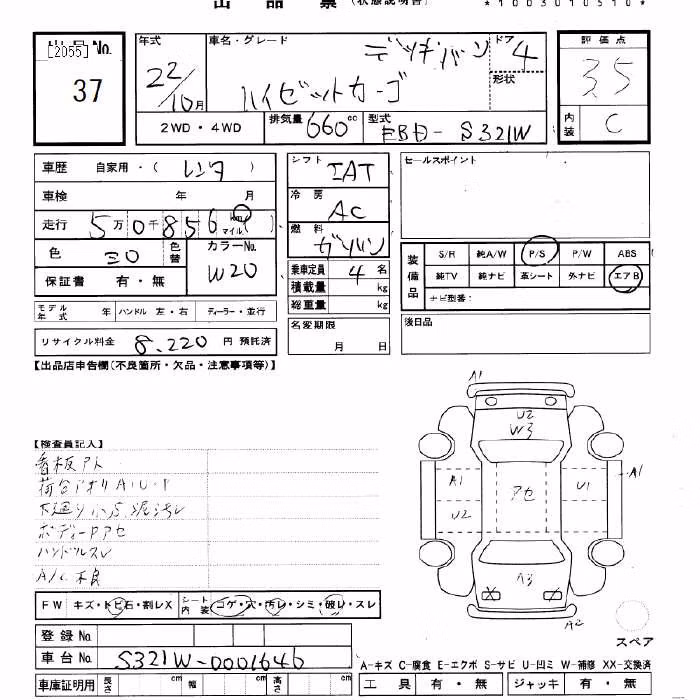 出品票 (状態説明書) *1003010510*
出品 No. [2055]
37
年式 22/10月
車名・グレード デッキバン ハイゼットカーゴ
ドア 4
形状
評価点 3.5
内装 C
2WD・4WD
排気量 660cc
型式 EBD-S321W
車歴 自家用・(レンタ)
車検 年 月
走行 5万0千856 km マイル
色 シロ 色替
カラーNo. W20
保証書 有・無
シフト IAT
冷房 AC
燃料 ガソリン
乗車定員 4名
積載量 kg
総重量 kg
セールスポイント
装備品 S/R 純A/W P/S P/W ABS
純TV 純ナビ 革シート 外ナビ エアB
ナビ型番:
モデル年式 年 ハンドル 左・右 ディーラー・並行
名変期限 月 日
後日品
リサイクル料金 8,220 円 預託済
【出品店申告欄(不良箇所・欠品・注意事項等)】
【検査員記入】
看板アト
荷台アオリA・U・P
下廻り小S 泥汚レ
ボディーPアセ
ハンドルスレ
A/C不良
A1
U2
W3
A1
U2
アセ
U1
A1
A3
X X
A2
スペア
FW キズ・トビ石・割レX シート内装 コゲ・穴・汚レ・シミ・破レ・スレ
登録No.
車台No. S321W-0001646
A-キズ C-腐食 E-エクボ S-サビ U-凹ミ W-補修 XX-交換済
車庫証明用 長さ cm 幅 cm 高さ cm
工具 有・無 ジャッキ 有・無